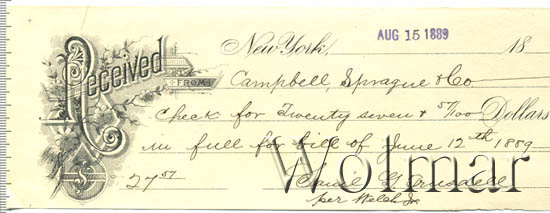 AUG 15 1889
New York, 18
Received
FROM Campbell, Sprague & Co
Check for Twenty seven & 57/100 Dollars
in full for bill of June 12th 1889
Wolmar
$ 27 57
per Welch Jr